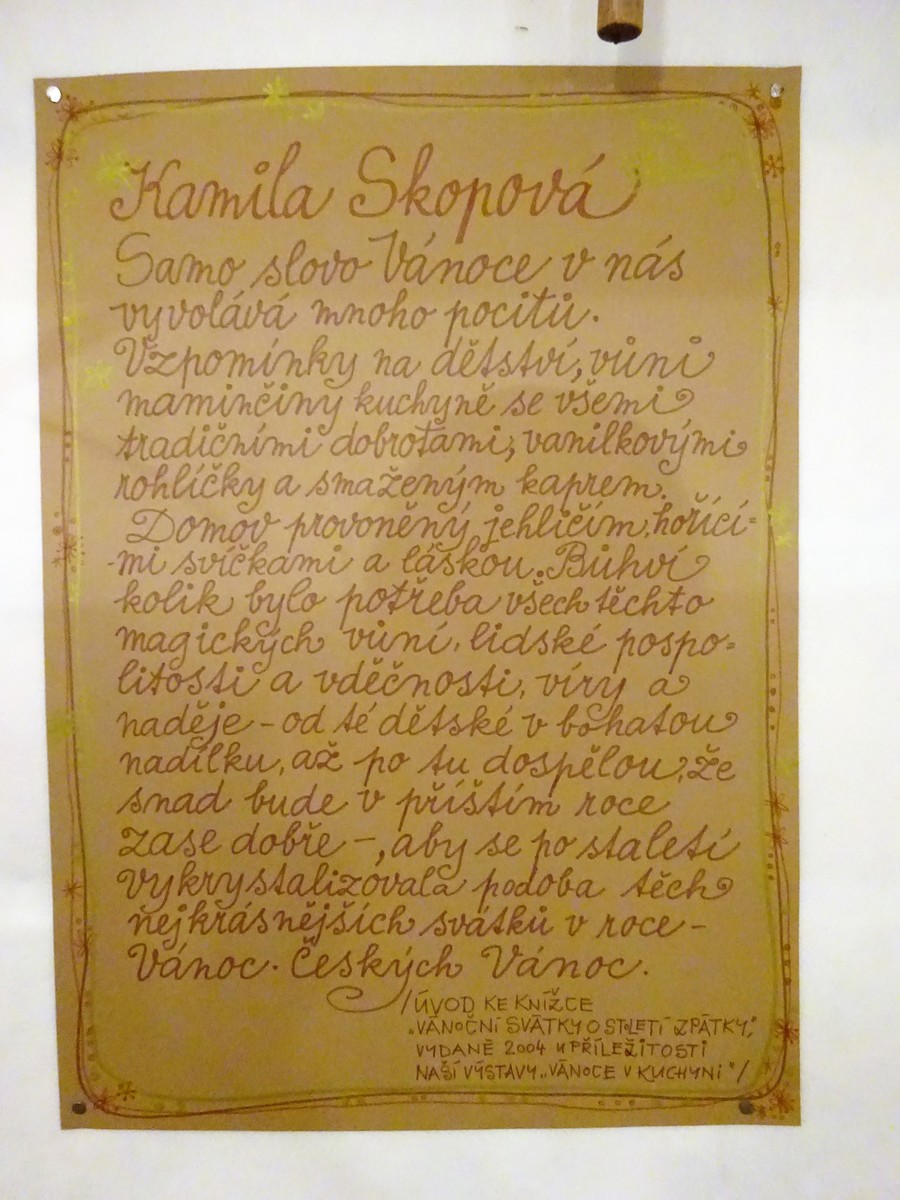 Kamila Skopová
Samo slovo Vánoce v nás
vyvolává mnoho pocitů.
Vzpomínky na dětství, vůni
maminčiny kuchyně se všemi
tradičními dobrotami, vanilkovými
rohlíčky a smaženým kaprem.
Domov provoněný jehličím, hořící=
-mi svíčkami a láskou. Bůhví
kolik bylo potřeba všech těchto
magických vůní, lidské pospo=
litosti a vděčnosti, víry a
naděje - od té dětské v bohatou
nadílku, až po tu dospělou, že
snad bude v příštím roce
zase dobře -, aby se po staletí
vykrystalizovala podoba těch
nejkrásnějších svátků v roce -
Vánoc. Českých Vánoc.
/ÚVOD KE KNÍŽCE
„VÁNOČNÍ SVÁTKY O STLETÍ ZPÁTKY,"
VYDANÉ 2004 U PŘÍLEŽITOSTI
NAŠÍ VÝSTAVY „VÁNOCE V KUCHYNI"/